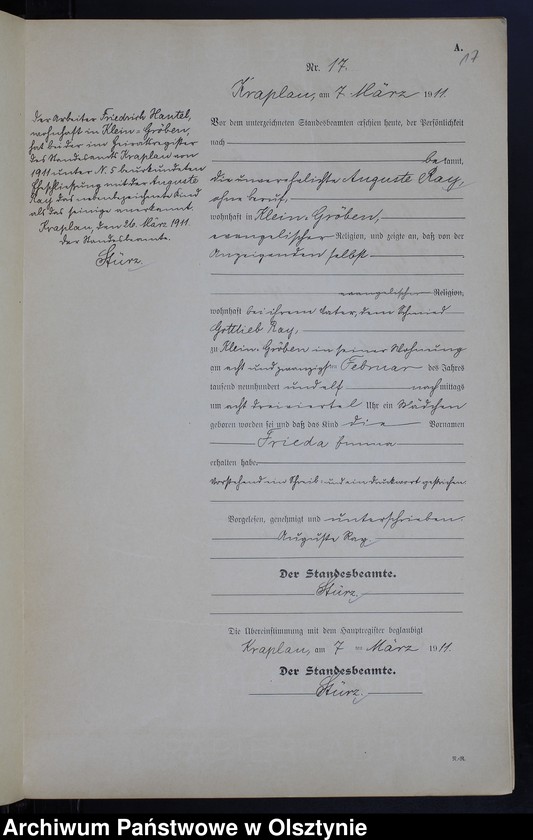 A.
17
Nr. 17.
Kraplau, am 7 März 1911.
Vor dem unterzeichneten Standesbeamten erschien heute, der Persönlichkeit
nach
bekannt,
die unverehelichte Auguste Ray,
ohne Beruf,
wohnhaft in Klein-Gröben,
evangelischer Religion, und zeigte an, daß von der
Anzeigenden selbst
evangelischer Religion,
wohnhaft bei ihrem Vater, dem Schmied
Gottlieb Ray,
zu Klein-Gröben in seiner Wohnung
am acht und zwanzigsten Februar des Jahres
tausend neunhundert und elf nachmittags
um acht dreiviertel Uhr ein Mädchen
geboren worden sei und daß das Kind die Vornamen
Frieda Emma
erhalten habe.
Vorstehend ein Schreib- und ein Druckwort gestrichen
Vorgelesen, genehmigt und unterschrieben.
Auguste Ray
Der Standesbeamte.
Stürz.
Die Übereinstimmung mit dem Hauptregister beglaubigt
Kraplau, am 7 ten März 1911.
Der Standesbeamte.
Stürz.
Der Arbeiter Friedrich Hantel,
wohnhaft in Klein-Gröben,
hat bei der im Heiratsregister
des Standesamts Kraplau von
1911 unter N. 5 beurkundeten
Eheschließung mit der Auguste
Ray das nebenbezeichnete Kind
als das seinige anerkannt.
Kraplau, den 26. März 1911.
Der Standesbeamte.
Stürz.
Archiwum Państwowe w Olsztynie